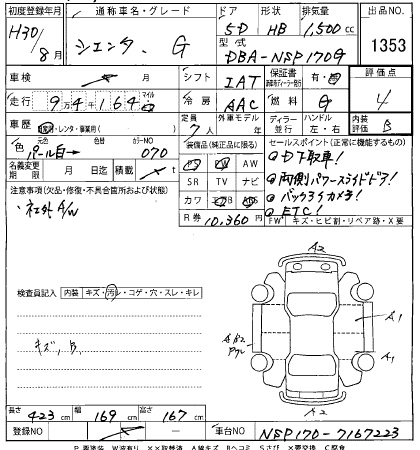 初度登録年月 通称車名・グレード ドア 形状 排気量 出品NO.
H30/8月 シエンタ G 5D HB 1,500cc 1353
型式 DBA-NSP170G
車検 月 シフト IAT 保証書 有・無 評価点
走行 9万4千164 マイル 冷房 AAC 燃料 G 4
車歴 自家用・レンタ・事業用( ) 定員 7人 外車モデル年 ディーラー・並行 ハンドル 左・右 内装評価 B
色 元色 パール白→ 色替 カラーNO 070
装備品(純正品に限る) セールスポイント(正常に機能するもの)
PS PW AW
名義変更期限 月 日迄 積載
SR TV ナビ
カワ エアB ABS
R券 10,360円
◎D下取車!
◎両側パワースライドドア!
◎バックアイカメラ!
◎ETC!
FW キズ・ヒビ割・リペア跡・X要
注意事項(欠品・修復・不具合箇所および状態)
・社外A/W
検査員記入 内装 キズ・汚レ・コゲ・穴・スレ・キレ
キズ、B、
A2
A1
A1
A2
長さ 423cm 幅 169cm 高さ 167cm
登録NO 車台NO NSP170-7167223
P要塗装 W波有り XX取替済 A線キズ Bヘコミ Sさび X要交換 C腐食